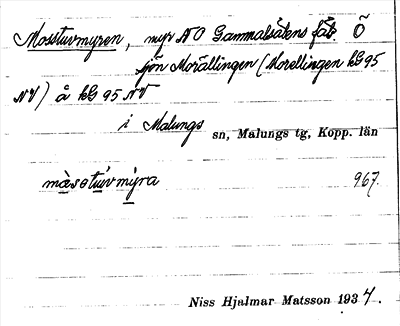 Mossetuvmyren, myr NO Gammalsätens fäb Ö
sjön Morällingen (Korellingen kG 95
NV) å kG 95 NV
i Malungs sn, Malungs tg, Kopp. län
måsetuvmýra 967.
Niss Hjalmar Matsson 1934.